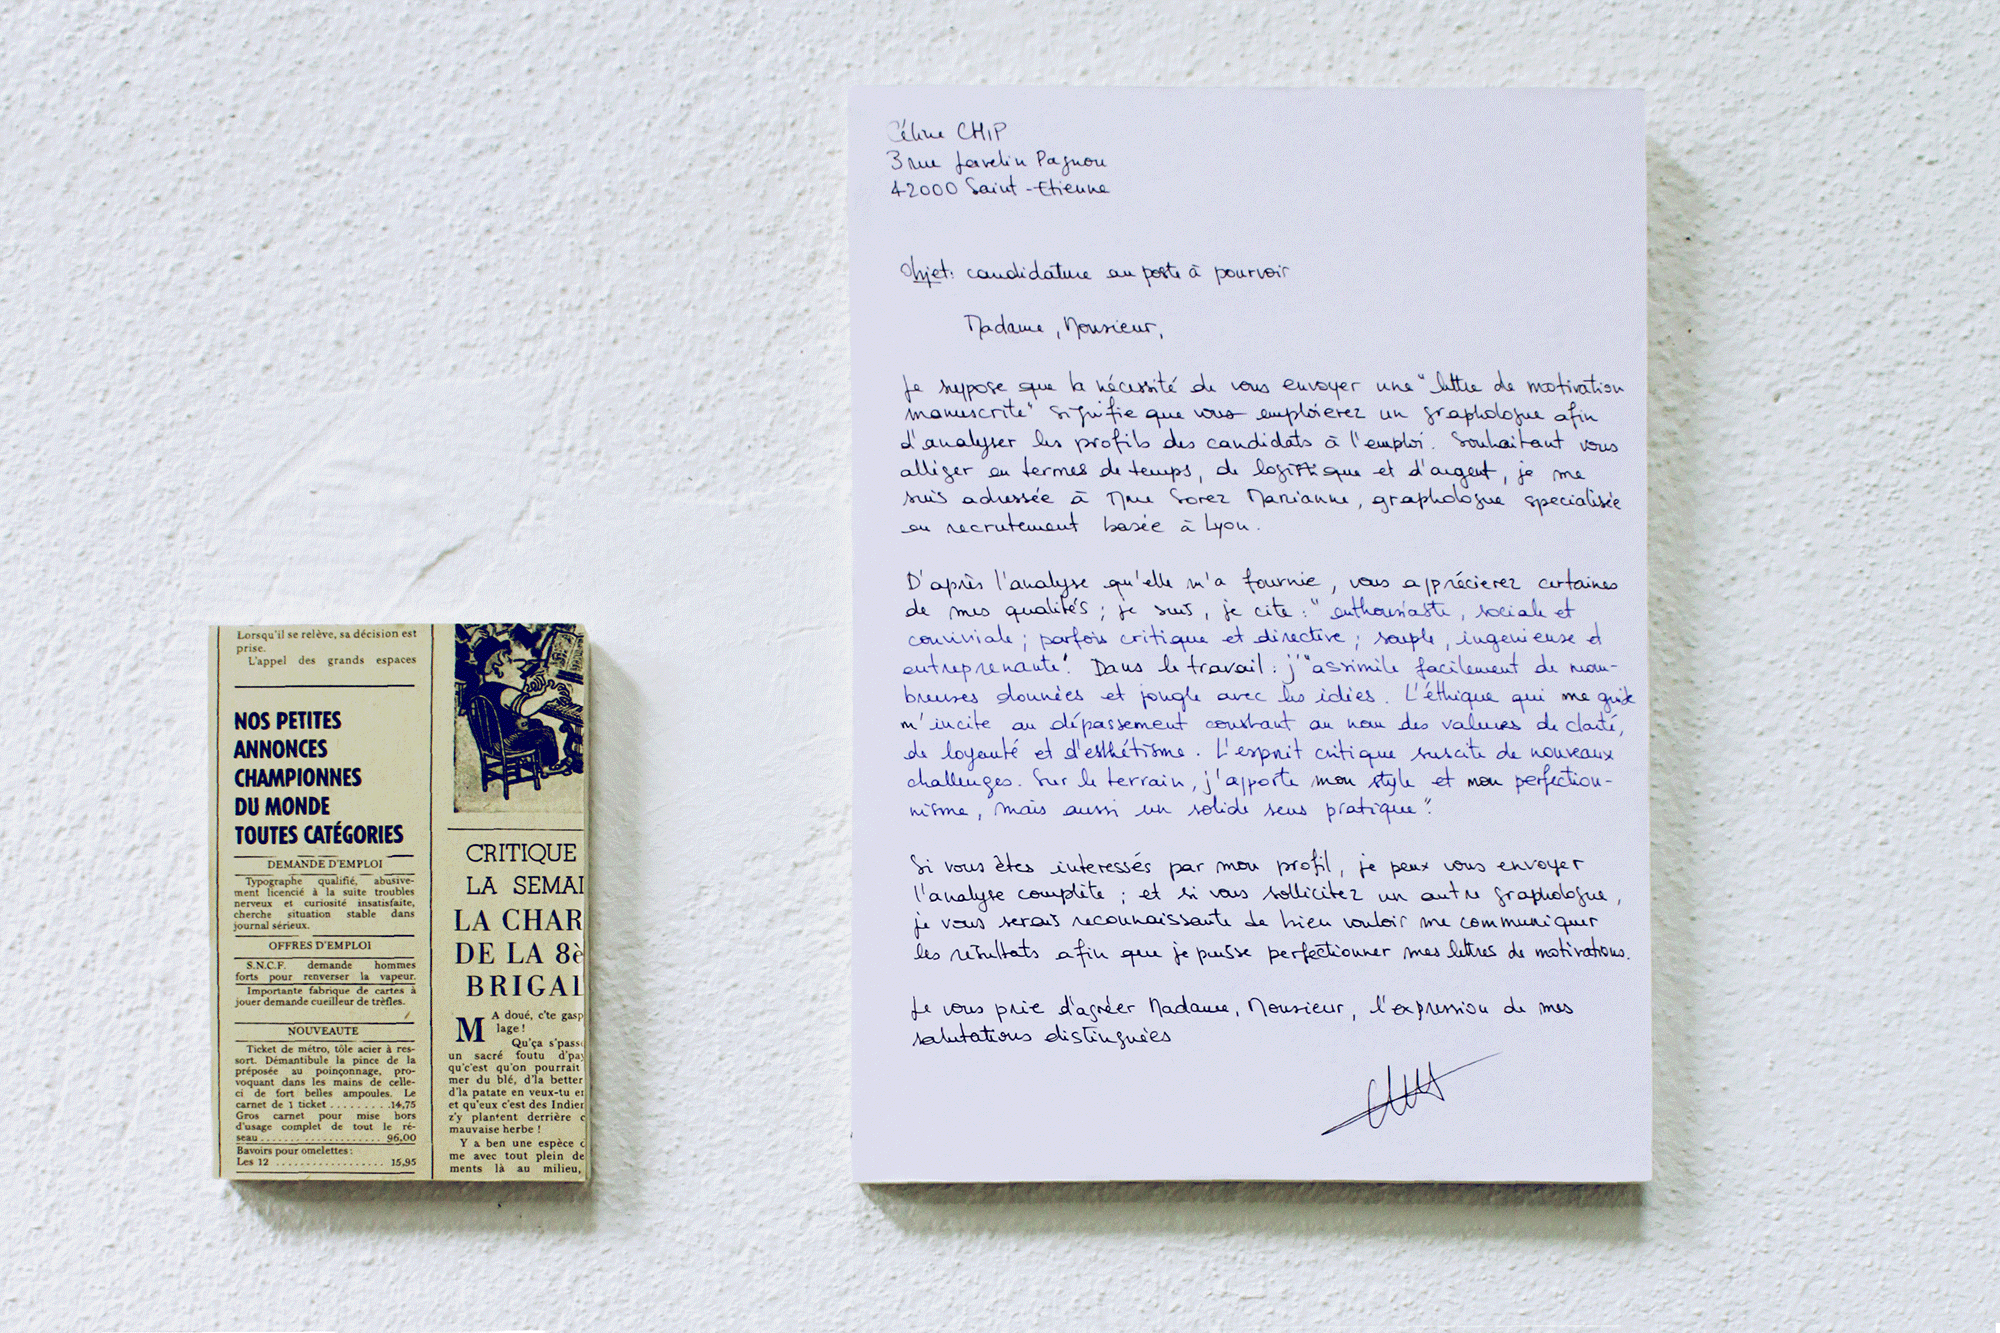 Lorsqu'il se relève, sa décision est
prise.
L'appel des grands espaces
NOS PETITES
ANNONCES
CHAMPIONNES
DU MONDE
TOUTES CATÉGORIES
DEMANDE D'EMPLOI
Typographe qualifié, abusive-
ment licencié à la suite troubles
nerveux et curiosité insatisfaite,
cherche situation stable dans
journal sérieux.
OFFRES D'EMPLOI
S.N.C.F. demande hommes
forts pour renverser la vapeur.
Importante fabrique de cartes à
jouer demande cueilleur de trèfles.
NOUVEAUTE
Ticket de métro, tôle acier à res-
sort. Démantibule la pince de la
préposée au poinçonnage, pro-
voquant dans les mains de celle-
ci de fort belles ampoules. Le
carnet de 1 ticket .........14,75
Gros carnet pour mise hors
d'usage complet de tout le ré-
seau .................. 96,00
Bavoirs pour omelettes :
Les 12 ................. 15,95
CRITIQUE
LA SEMAI
LA CHAR
DE LA 8è
BRIGAL
MA doué, c'te gasp
lage !
Qu'ça s'pass
un sacré foutu d'pay
qu'c'est qu'on pourrait
mer du blé, d'la better
d'la patate en veux-tu en
et qu'eux c'est des Indien
z'y plantent derrière c
mauvaise herbe !
Y a ben une espèce d
me avec tout plein de
ments là au milieu,
Céline CHIP
3 rue Javelin Pagnon
42000 Saint-Etienne
Objet: candidature au poste à pourvoir
Madame, Monsieur,
Je suppose que la nécessité de vous envoyer une "lettre de motivation
manuscrite" signifie que vous emploierez un graphologue afin
d'analyser les profils des candidats à l'emploi. Souhaitant vous
alléger en termes de temps, de logistique et d'argent, je me
suis adressée à Mme Sorez Marianne, graphologue specialisée
en recrutement basée à Lyon.
D'après l'analyse qu'elle m'a fournie, vous apprécierez certaines
de mes qualités ; je suis, je cite : "enthousiaste, sociale et
conviviale ; parfois critique et directive ; souple, ingenieuse et
entreprenante". Dans le travail : j'"assimile facilement de nom-
breuses données et jongle avec les idées. L'éthique qui me guide
m'incite au dépassement constant au nom des valeurs de clarté,
de loyauté et d'esthétisme. L'esprit critique suscite de nouveaux
challenges. Sur le terrain, j'apporte mon style et mon perfection-
nisme, mais aussi un solide sens pratique".
Si vous êtes interessés par mon profil, je peux vous envoyer
l'analyse complète ; et si vous sollicitez un autre graphologue,
je vous serais reconnaissante de bien vouloir me communiquer
les résultats afin que je puisse perfectionner mes lettres de motivations.
Je vous prie d'agréer Madame, Monsieur, l'expression de mes
salutations distinguées